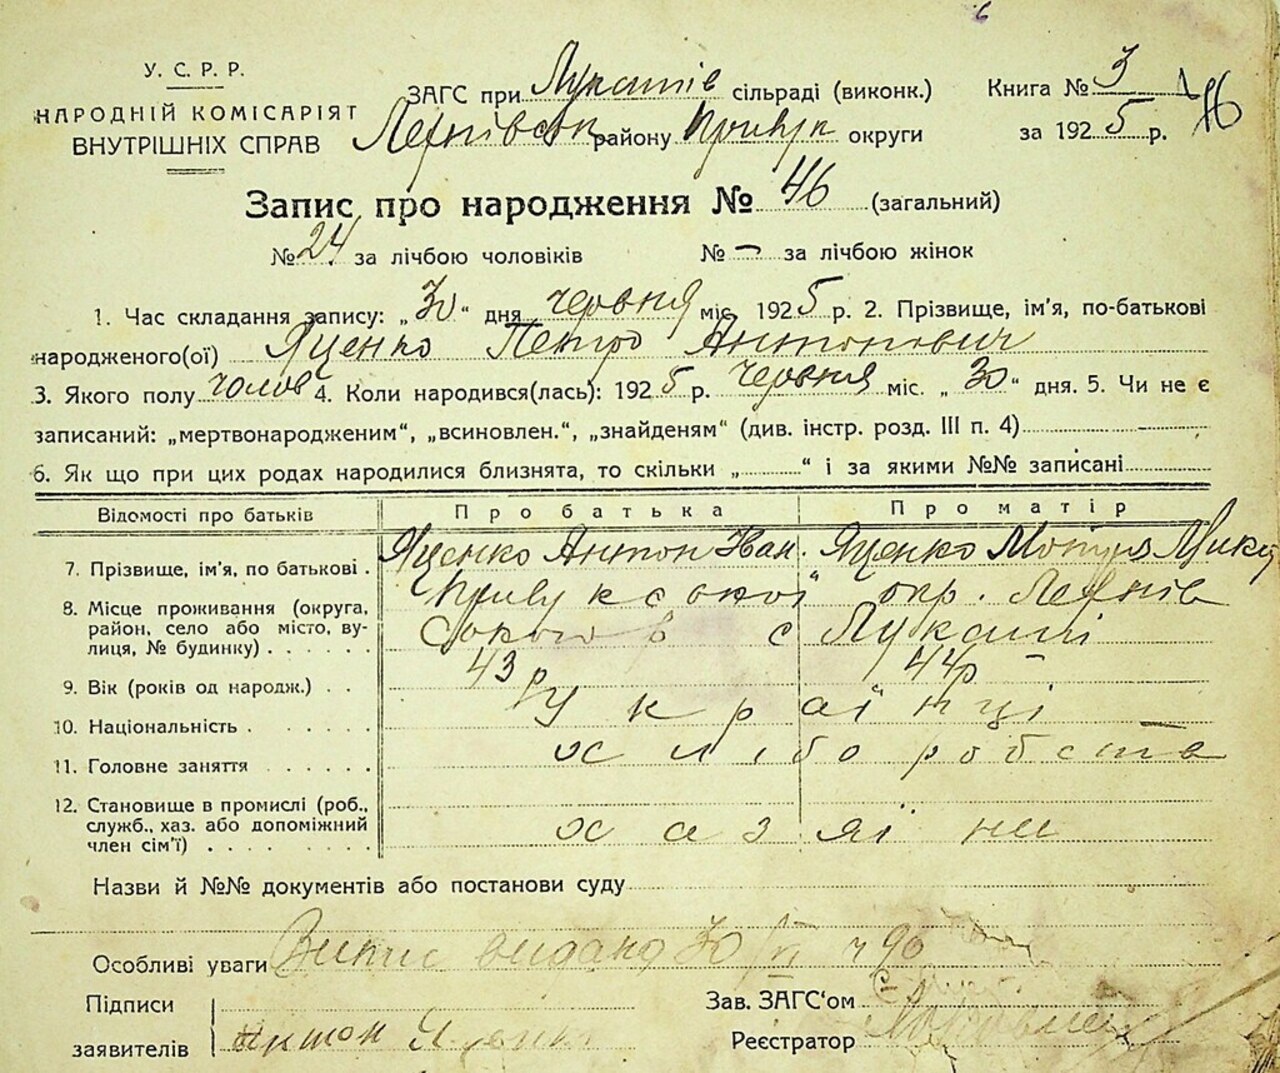 6
У. С. Р. Р.
НАРОДНІЙ КОМІСАРІЯТ
ВНУТРІШНІХ СПРАВ
ЗАГС при Лукашів сільраді (виконк.)
район у Прилук округи
Книга № 3
за 1925 р.
46
Запис про народження № 46 (загальний)
№ 24 за лічбою чоловіків № – за лічбою жінок
1. Час складання запису: „30“ дня червня міс. 1925 р. 2. Прізвище, ім'я, по-батькові
народженого(ої) Яценко Петро Антонович
3. Якого полу чолов 4. Коли народився(лась): 1925 р. червня міс. „30“ дня. 5. Чи не є
записаний: „мертвонародженим“, „всиновлен.“, „знайденям“ (див. інстр. розд. III п. 4) –
6. Як що при цих родах народилися близнята, то скільки „ “ і за якими №№ записані
Відомості про батьків Про батька Про матір
7. Прізвище, ім'я, по батькові . Яценко Антон Іван. Яценко Мотря
8. Місце проживання (округа, район, село або місто, вулиця, № будинку) . . . . . . Прилукської окр.
с Лукаші
9. Вік (років од народж.) . . 43 р 44р –
10. Національність . . . . . . Українці
11. Головне заняття . . . . . . хліборобств
12. Становище в промислі (роб., служб., хаз. або допоміжний член сім'ї) . . . . . . . . хазяїни
Назви й №№ документів або постанови суду
Особливі уваги Випис видано 30/VI 90
Підписи
заявителів Антон Яценко
Зав. ЗАГС'ом
Реєстратор